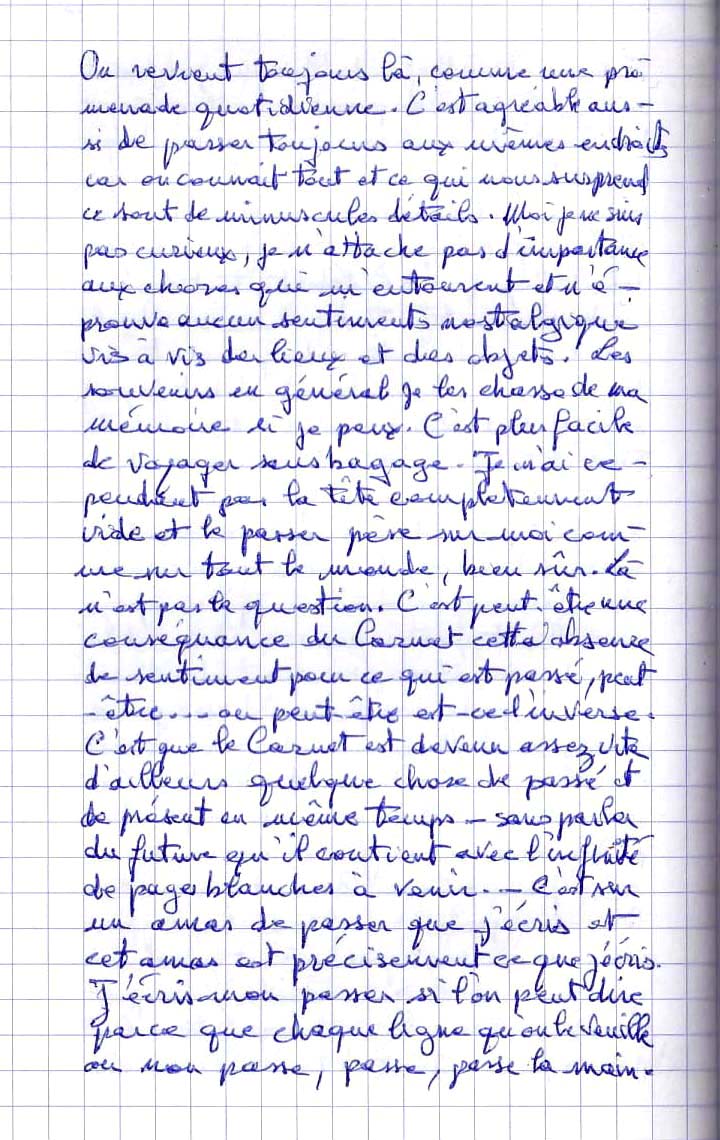 On revient toujours là, comme une pro-
menade quotidienne. C'est agréable aus-
si de passer toujours aux mêmes endroits
car on connait tout et ce qui nous surprend
ce sont de minuscules détails. Moi je ne suis
pas curieux, je n'attache pas d'importance
aux choses qui m'entourent et n'é-
prouve aucun sentiments nostalgique
vis à vis des lieux et des objets. Les
souvenirs en général je les chasse de ma
mémoire si je peux. C'est plus facile
de voyager sans bagage. Je n'ai ce-
pendant pas la tête complètement
vide et le passer pèse sur moi com-
me sur tout le monde, bien sûr. Là
n'est pas la question. C'est peut-être une
conséquance du Carnet cette absence
de sentiment pour ce qui est passé, peut
-être... ou peut-être est-ce l'inverse.
C'est que le Carnet est devenu assez vite
d'ailleurs quelque chose de passé et
de présent en même temps - sans parler
du future qu'il contient avec l'infinité
de pages blanches à venir. - C'est sur
un amas de passer que j'écris et
cet amas est précisemment ce que j'écris.
J'écris mon passer si l'on peut dire
parce que chaque ligne qu'on le veuille
ou non passe, passe, passe la main.